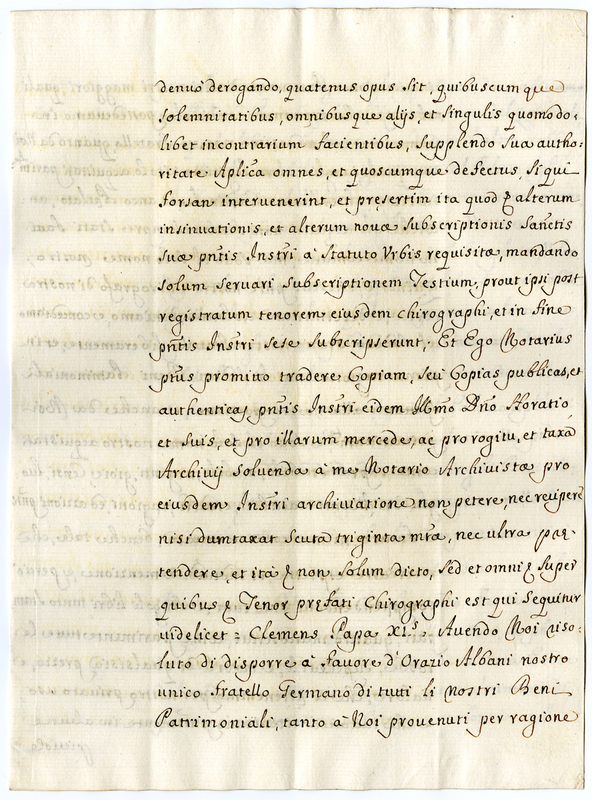 denuò derogando, quatenus opus sit, quibuscumque
solemnitatibus, omnibusque alijs, et singulis quomodo-
libet incontrarium facientibus, supplendo sua autho-
ritate Aplica omnes, et quoscumque defectus, si qui
forsan intervenerint, et presertim ita quod alterum
insinuationis, et alterum novæ subscriptionis Sanctis
suæ pntis Instri à Statuto Urbis requisitæ, mandando
solum servari subscriptionem Testium, prout ipsi post
registratum tenorem eiusdem chirographi, et in fine
pntis Instri sese subscripserunt; Et Ego Notarius
ptus promitto tradere Copiam, seu Copias publicas, et
authenticas pntis Instri eidem Illmo Dno Horatio
et suis, et pro illarum mercede, ac pro rogitu, et taxa
Archivij solvenda à me Notario Archivistæ pro
eiusdem Instri archiviatione non petere, nec recipere
nisi dumtaxat scuta triginta mta, nec ultra præ-
tendere, et ità non solum dicto, sed et omni super
quibus Tenor prefati Chirographi est qui sequitur
videlicet = Clemens Papa XI.s Avendo Noi riso-
luto di disporre à favore d'Orazio Albani nostro
unico fratello Germano di tutti li nostri Beni
Patrimoniali, tanto à Noi provenuti per ragione